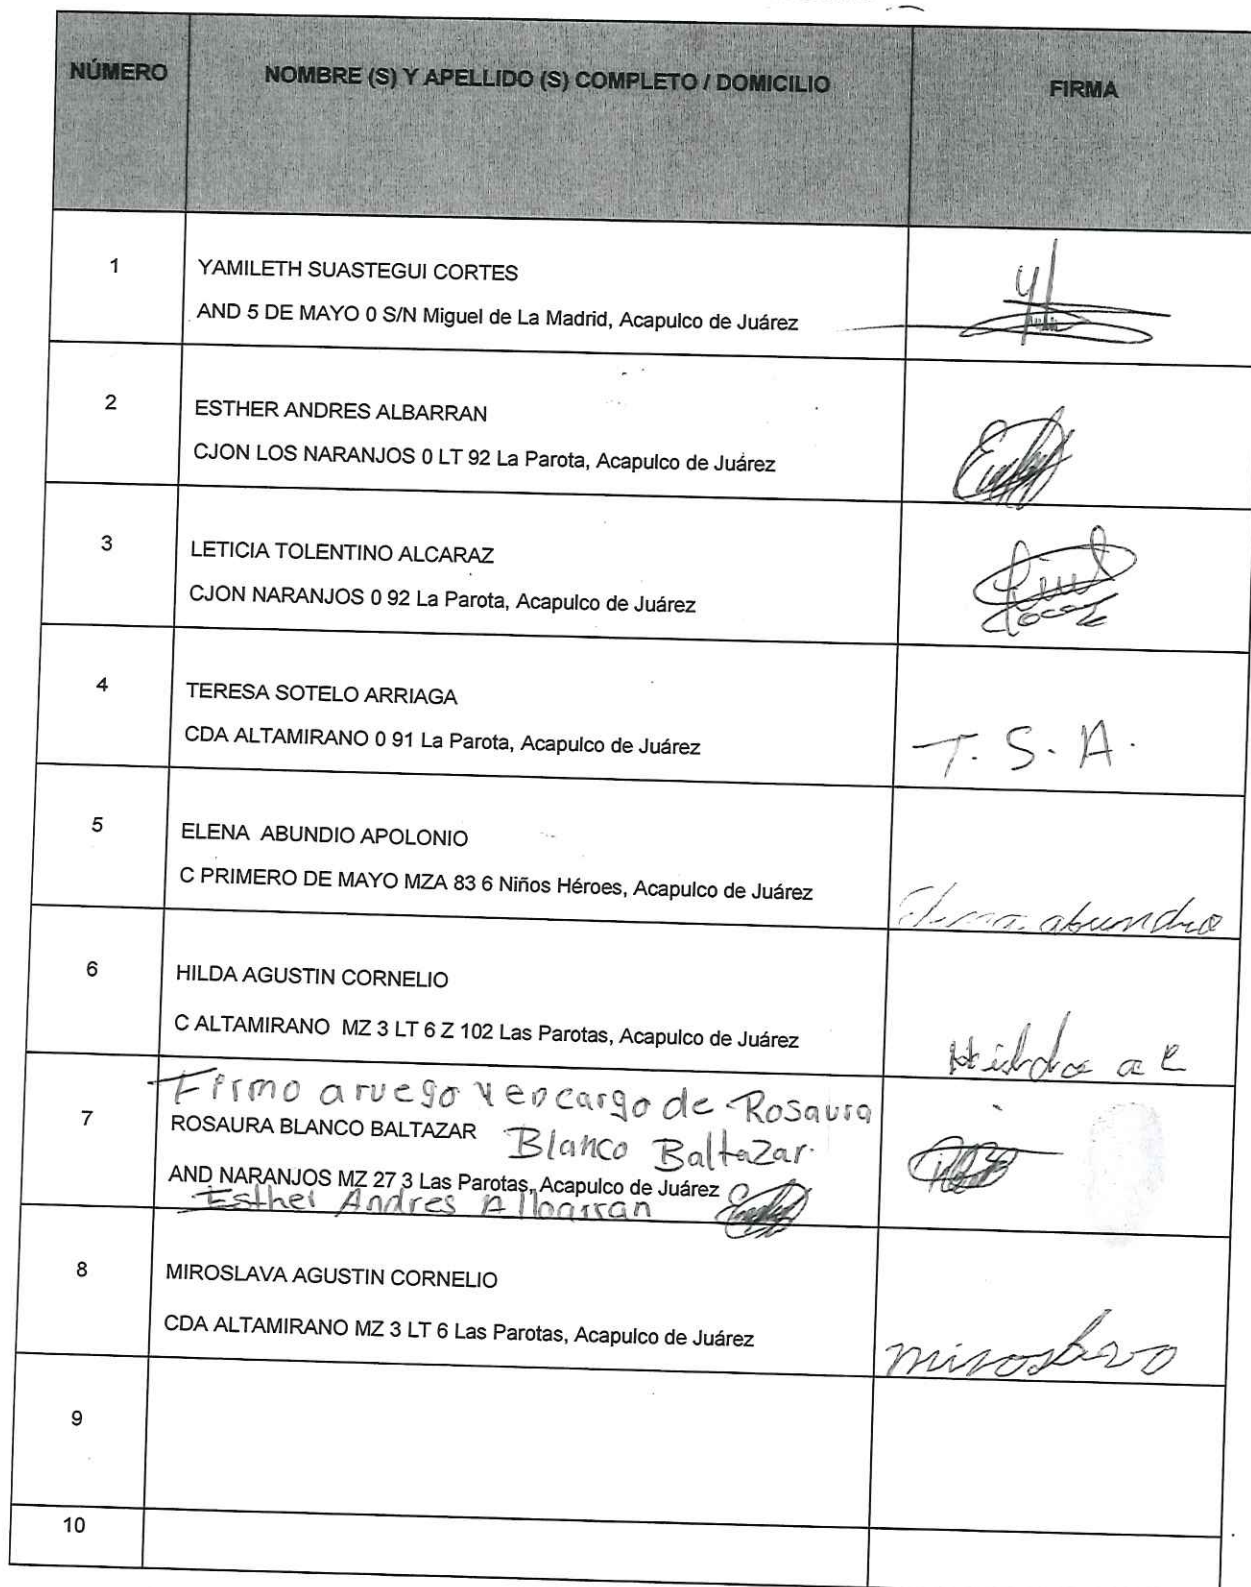 NÚMERO NOMBRE (S) Y APELLIDO (S) COMPLETO / DOMICILIO FIRMA
1 YAMILETH SUASTEGUI CORTES
AND 5 DE MAYO 0 S/N Miguel de La Madrid, Acapulco de Juárez
2 ESTHER ANDRES ALBARRAN
CJON LOS NARANJOS 0 LT 92 La Parota, Acapulco de Juárez
3 LETICIA TOLENTINO ALCARAZ
CJON NARANJOS 0 92 La Parota, Acapulco de Juárez
4 TERESA SOTELO ARRIAGA
CDA ALTAMIRANO 0 91 La Parota, Acapulco de Juárez
T. S. A.
5 ELENA ABUNDIO APOLONIO
C PRIMERO DE MAYO MZA 83 6 Niños Héroes, Acapulco de Juárez
abundio
6 HILDA AGUSTIN CORNELIO
C ALTAMIRANO MZ 3 LT 6 Z 102 Las Parotas, Acapulco de Juárez
Hilda a C
Firmo a ruego y encargo de Rosaura
7 ROSAURA BLANCO BALTAZAR Blanco Baltazar.
AND NARANJOS MZ 27 3 Las Parotas, Acapulco de Juárez
Esther Andres Albarran
8 MIROSLAVA AGUSTIN CORNELIO
CDA ALTAMIRANO MZ 3 LT 6 Las Parotas, Acapulco de Juárez
9
10